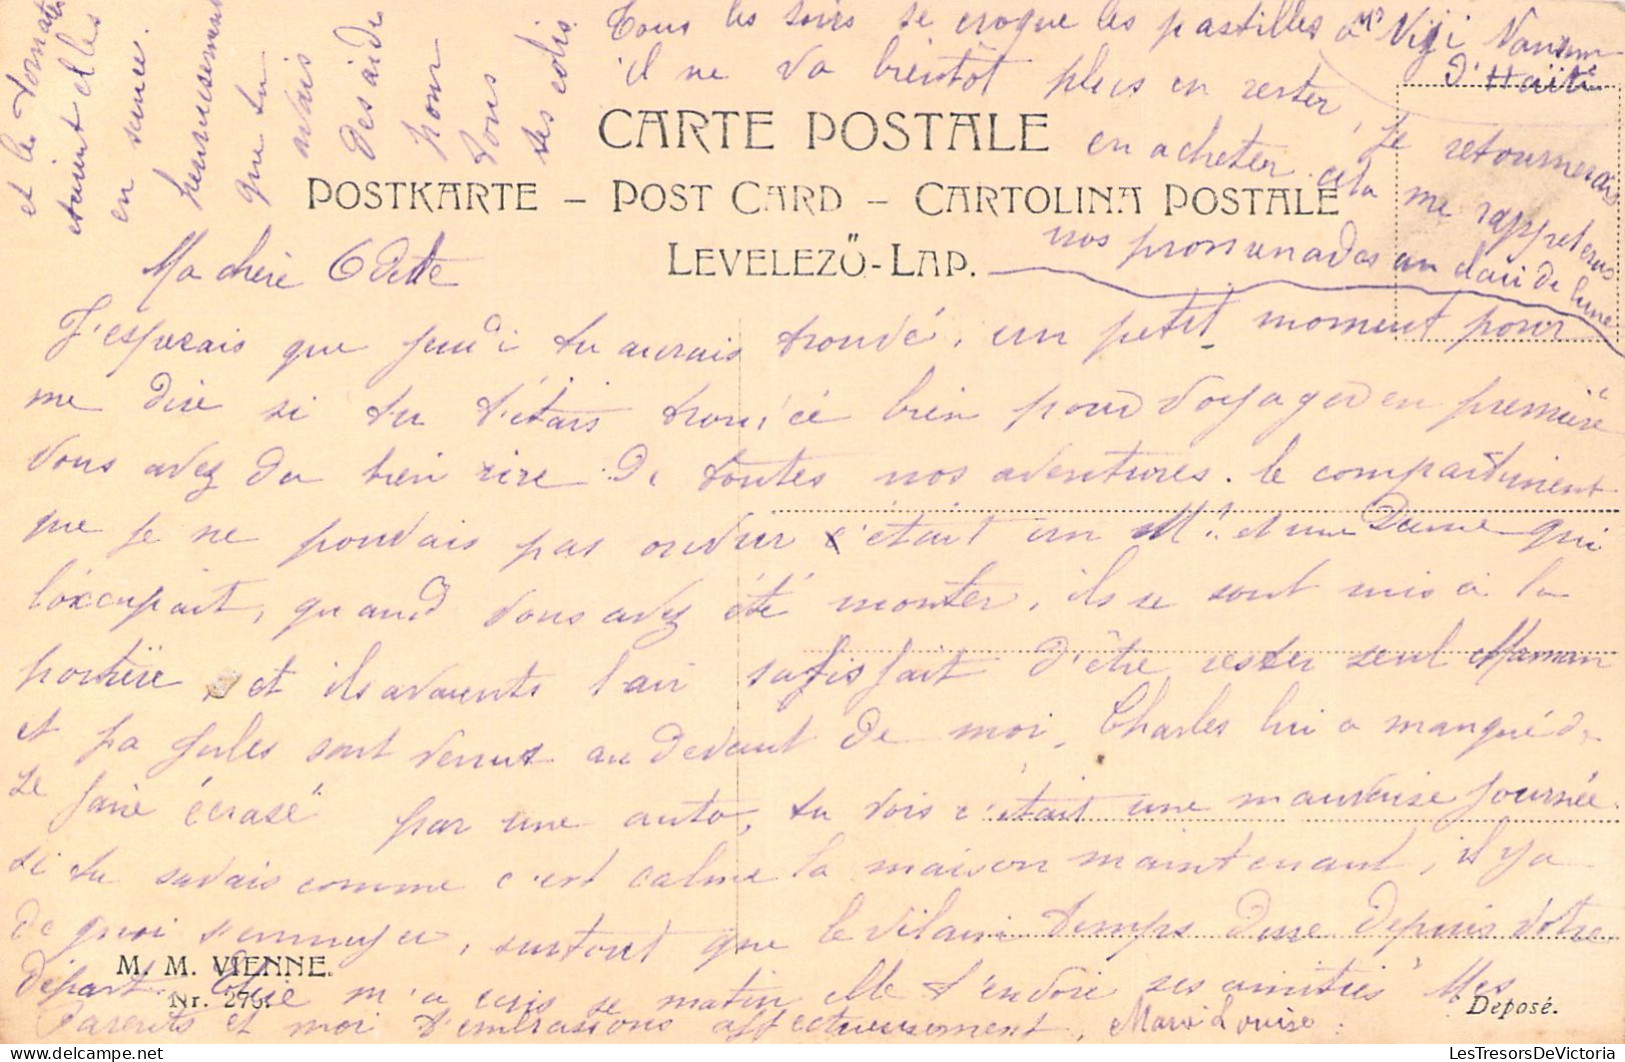 Tous les soirs je croque les pastilles à Mr
il ne va bientôt plus en rester, je retournerais
d'Haïti
en acheter cela me rappeleras
nos promenades au clair de lune
et les
étaient elles
en
heureusement
que tu
avais
des aides
pour
tous
tes colis
CARTE POSTALE
POSTKARTE – POST CARD – CARTOLINA POSTALE
LEVELEZŐ-LAP.
Ma chère Odette
J'esperais que jeudi tu aurais trouvé, un petit moment pour
me dire si tu t'étais trouvée bien pour voyager en première
vous avez du bien rire de toutes nos aventures. le compartiment
que je ne pouvais pas ouvrir c'était un Mr. et une Dame qui
l'occupait, quand vous avez été monter, ils se sont mis à la
portière, et ils avaients l'air satisfait d'être rester seul Maman
et pa Jules sont venus au devant de moi, Charles lui a manqué de
se faire écrasé par une auto, tu vois c'était une mauvaise journée.
si tu savais comme c'est calme la maison maintenant, il y a
de quoi s'ennuyer, surtout que le vilain temps dure depuis votre
départ. m'a ecris se matin elle t'envoie ses amitiés Mes
Parents et moi t'embrassons affectueusement, Marie Louise.
M. M. VIENNE.
Nr. 276.
Deposé.
LesTresorsDeVictoria.com